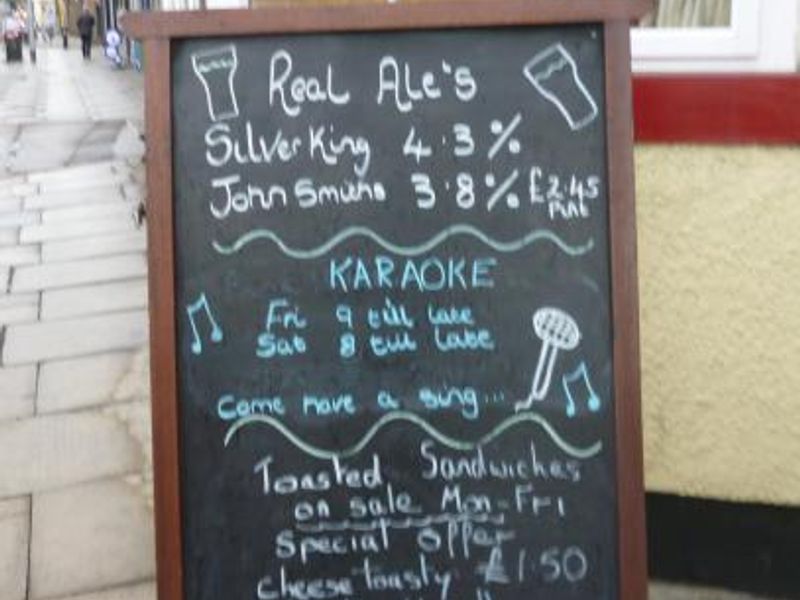 Real Ale's
Silver King 4.3%
John Smiths 3.8% £2.45
Pint
KARAOKE
Fri 9 till late
Sat 8 till late
Come have a sing...
Toasted Sandwiches
on sale Mon-Fri
Special offer
cheese toasty £1.50